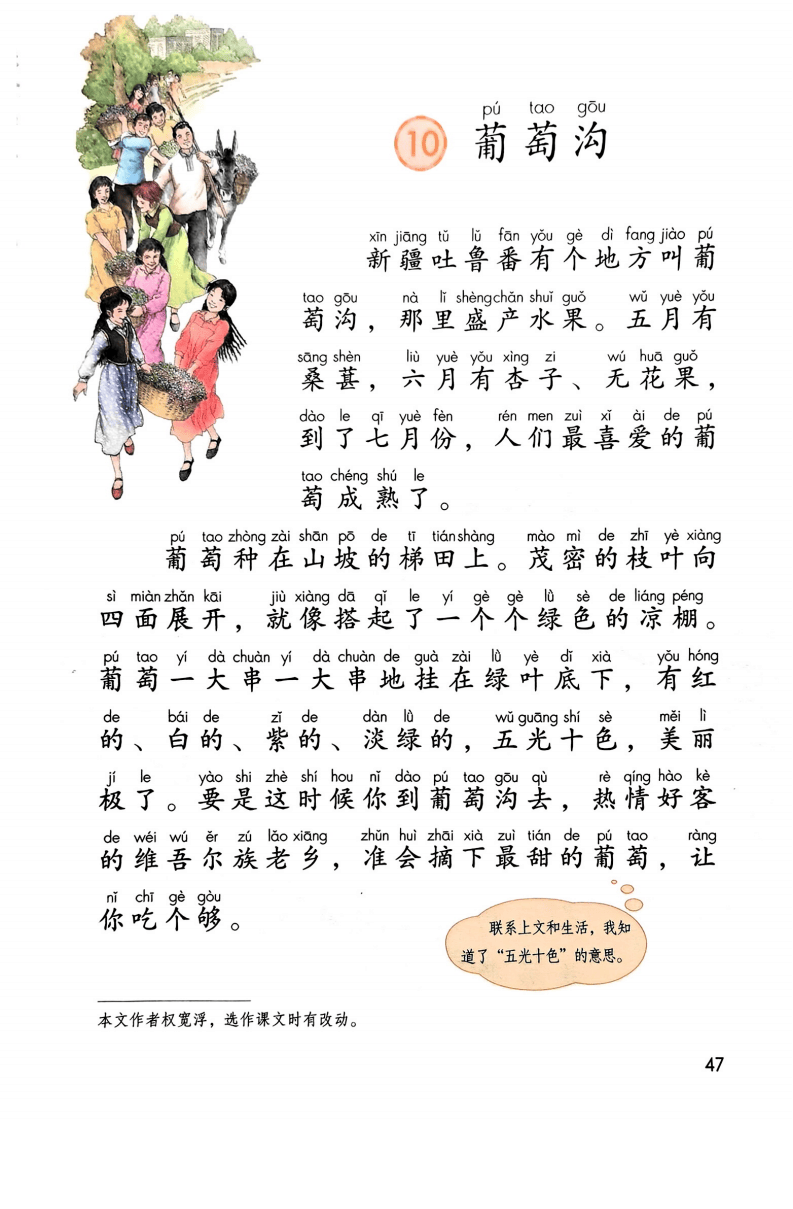 pú tao gōu
10 葡萄沟
xīn jiāng tǔ lǔ fān yǒu gè dì fang jiào pú
新疆吐鲁番有个地方叫葡
tao gōu nà lǐ shèng chǎn shuǐ guǒ wǔ yuè yǒu
萄沟，那里盛产水果。五月有
sāng shèn liù yuè yǒu xìng zi wú huā guǒ
桑葚，六月有杏子、无花果，
dào le qī yuè fèn rén men zuì xǐ ài de pú
到了七月份，人们最喜爱的葡
tao chéng shú le
萄成熟了。
pú tao zhòng zài shān pō de tī tián shàng mào mì de zhī yè xiàng
葡萄种在山坡的梯田上。茂密的枝叶向
sì miàn zhǎn kāi jiù xiàng dā qǐ le yí gè gè lǜ sè de liáng péng
四面展开，就像搭起了一个个绿色的凉棚。
pú tao yí dà chuàn yí dà chuàn de guà zài lǜ yè dǐ xià yǒu hóng
葡萄一大串一大串地挂在绿叶底下，有红
de bái de zǐ de dàn lǜ de wǔ guāng shí sè měi lì
的、白的、紫的、淡绿的，五光十色，美丽
jí le yào shi zhè shí hou nǐ dào pú tao gōu qù rè qíng hào kè
极了。要是这时候你到葡萄沟去，热情好客
de wéi wú ěr zú lǎo xiāng zhǔn huì zhāi xià zuì tián de pú tao ràng
的维吾尔族老乡，准会摘下最甜的葡萄，让
nǐ chī gè gòu
你吃个够。
联系上文和生活，我知
道了“五光十色”的意思。
本文作者权宽浮，选作课文时有改动。
47